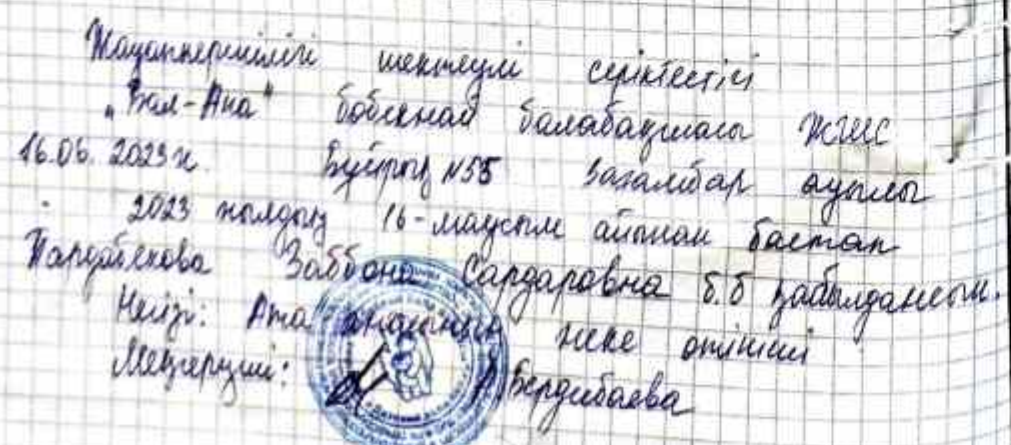 Жауапкершілігі шектеулі серіктестігі
"Бал-Ана" бөбекжай балабақшасы ЖШС
16.06. 2023 ж. Бұйрық №55 Базалибар ауылы
2023 жылдың 16-маусым айынан бастап
Пардабекова Заббона Сардаровна б.б қабылдансын.
Негізі: Ата анасының жеке өтініші
Меңгеруші: Бердибаева